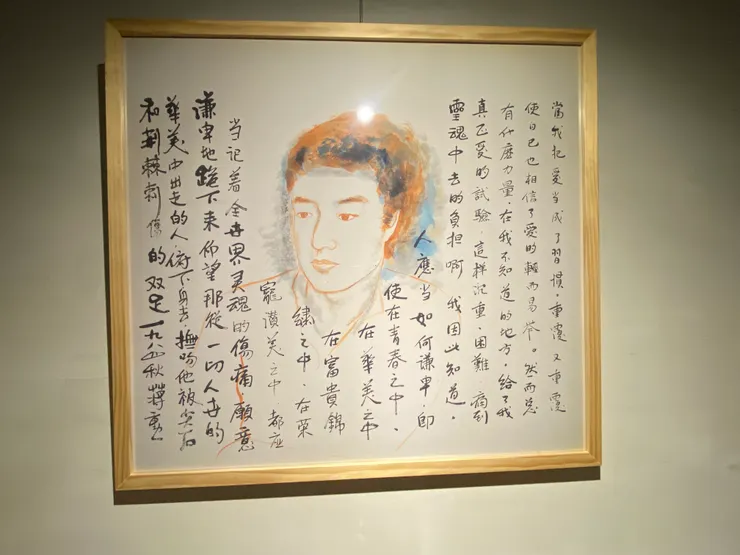 當我把愛当成了習慣，重覆又重覆
使自己也相信了愛的輕而易举。然而总
有什庅力量，在我不知道的地方，给了我
真正愛的試驗，這样沉重、困難、痛到
靈魂中去的負担啊 我因此知道，
人應当如何谦卑，即
使在青春之中、
在華美之中
在富貴錦
繡之中、在榮
寵讚美之中，都應
当记着全世界灵魂的傷痛，願意
谦卑地跪下来仰望那從一切人世的
華美中出走的人，俯下身去，撫吻他被尖石
和荆棘刺傷的双足 一九八五秋 蒋勳